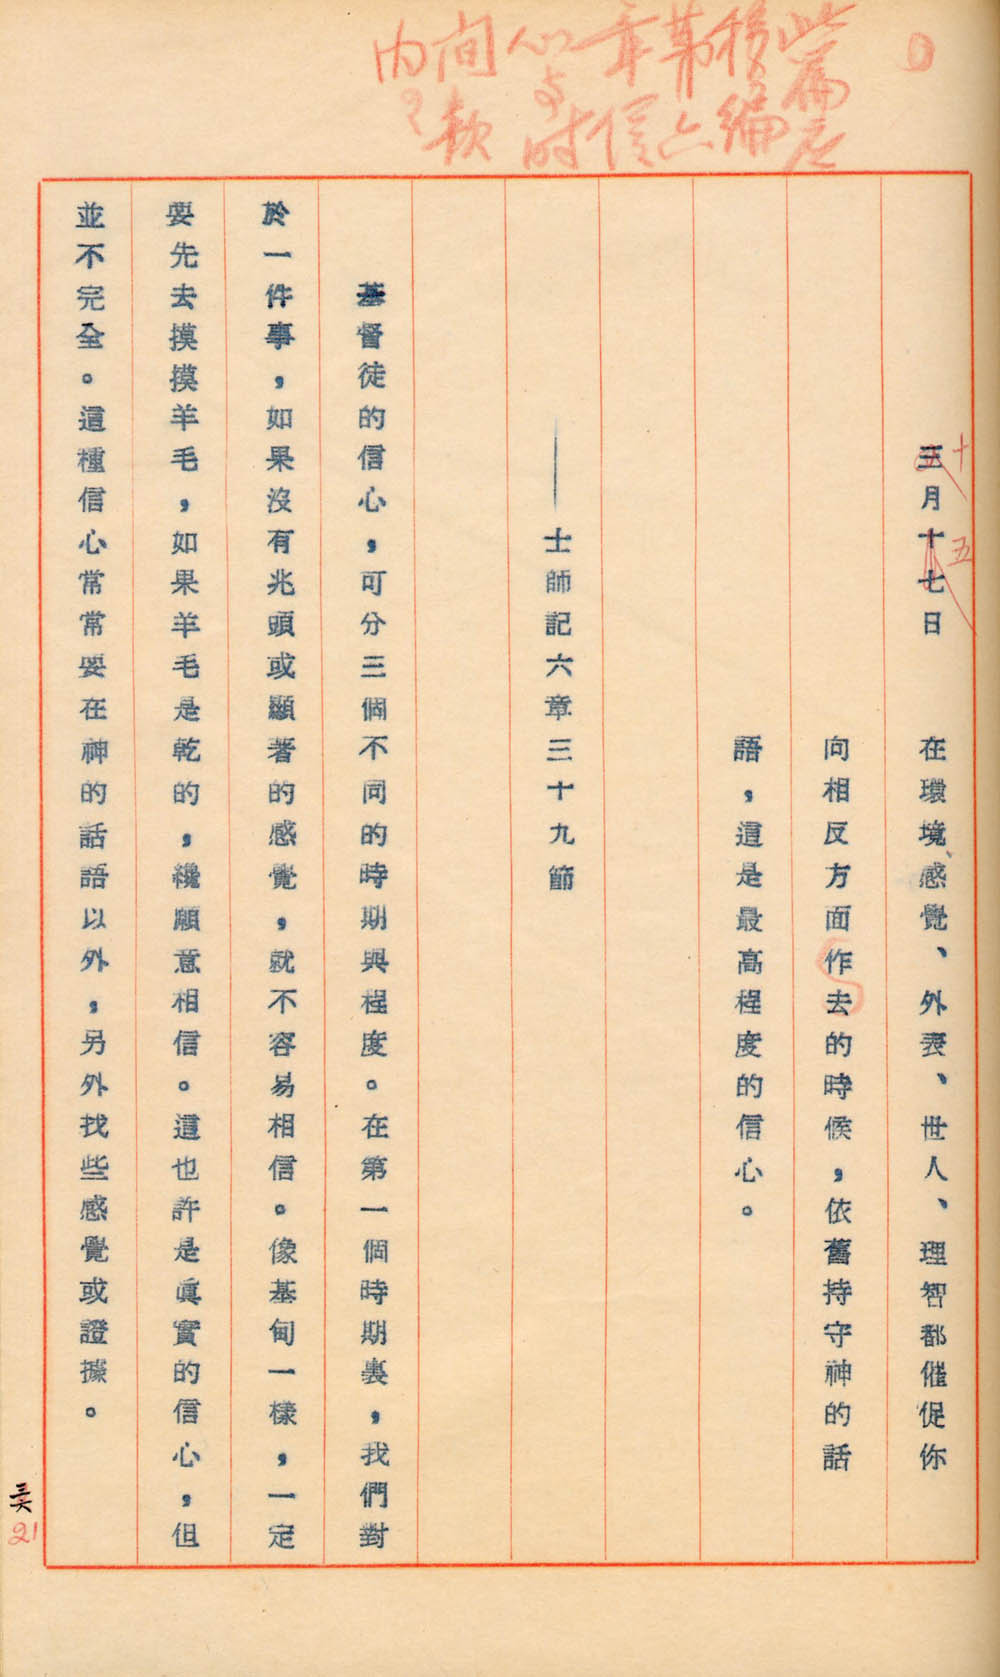 此篇应
移編
第六
章信
心与时
间款
内
三月十七日　在環境感覺、外表、世人、理智都催促你
十
五
向相反方面作去的時候，依舊持守神的話
語，這是最高程度的信心。
——士師記六章三十九節
基督徒的信心，可分三個不同的時期與程度。在第一個時期裏，我們對
於一件事，如果沒有兆頭或顯著的感覺，就不容易相信。像基甸一樣，一定
要先去摸摸羊毛，如果羊毛是乾的，纔願意相信。這也許是眞實的信心，但
並不完全。這種信心常常要在神的話語以外，另外找些感覺或證據。
21